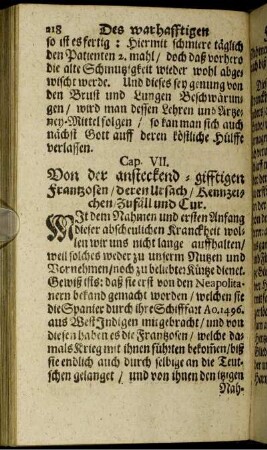 218 Des warhafftigen
so ist es fertig : Hiermit schmiere täglich
den Patienten 2. mahl / doch daß vorhero
die alte Schmutzigkeit wieder wohl abge-
wischt werde. Und dieses sey genung von
den Brust und Lungen Beschwärun-
gen / wird man dessen Lehren und Artze-
ney-Mittel folgen / so kan man sich auch
nächst Gott auff deren köstliche Hülffe
verlassen.
Cap. VII.
Von der ansteckend-gifftigen
Frantzosen / deren Ursach / Kennzei-
chen / Zufäll und Cur.
MIt dem Nahmen und ersten Anfang
dieser abscheulichen Kranckheit wol-
len wir uns nicht lange auffhalten /
weil solches weder zu unserm Nutzen und
Vornehmen / noch zu beliebter Kürtze dienet.
Gewiß ists: daß sie erst von den Neapolita-
nern bekand gemacht worden / welchen sie
die Spanier durch ihre Schiffart Ao. 1496.
aus West Indigen mitgebracht / und von
diesen haben es die Frantzosen / welche da-
mals Krieg mit ihnen führten bekom̃en / biß
sie endlich auch durch selbige an die Teut-
schen gelanget / und von ihnen den itzigen
Nah-